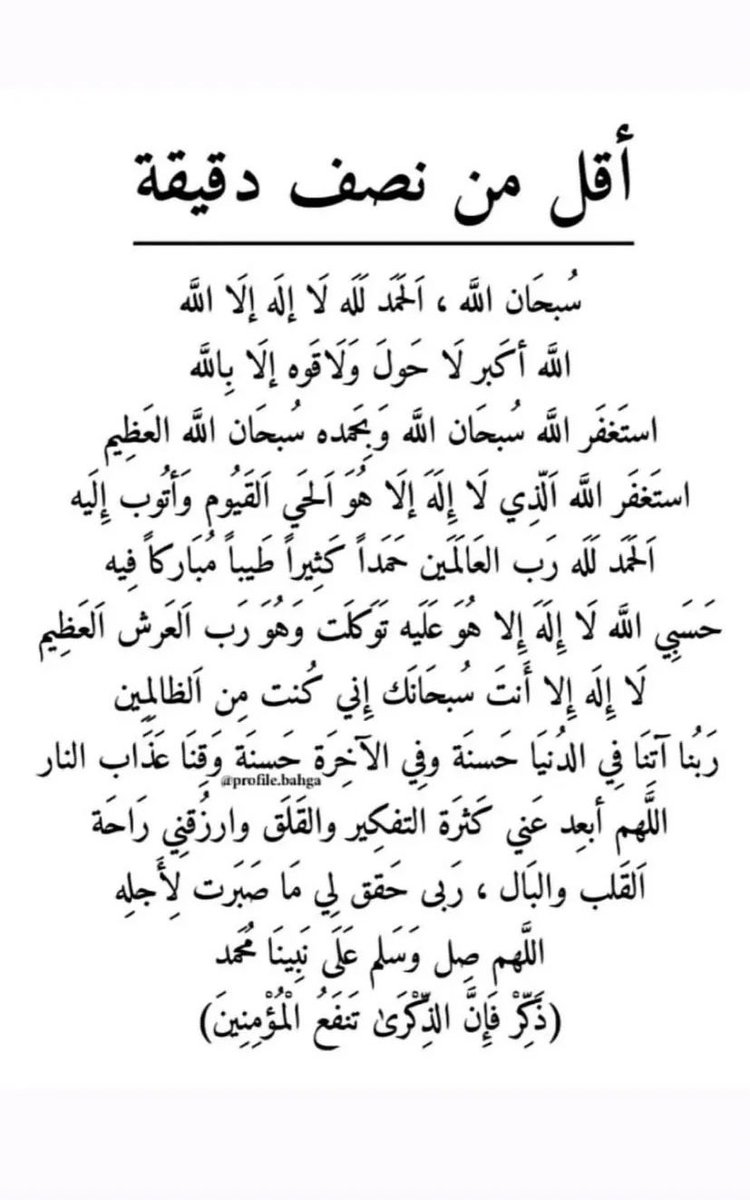 أقل من نصف دقيقة
سُبحَان اللَّه ، اَلحَمَد لَلَه لَا إلَه إلَا اللَّه
اللَّه أكَبر لَا حَولَ وَلَاقَوه إلَا بِاللَّه
استَغفَر اللَّه سُبحَان اللَّه وَبِحَمده سُبحَان اللَّه العَظِيم
استَغفَر اللَّه اَلَّذِي لَا إِلَهَ إلَا هُوَ اَلحَي اَلقَيُوم وَأتُوب إِلَيه
اَلحَمَد لَلَه رَب العَالَمَين حَمَداً كَثِيراً طَيباً مُبَاركاً فِيه
حَسَبِي اللَّه لَا إِلَهَ إِلا هُوَ عَلَيه تَوَكَلَت وَهُوَ رَب اَلعَرش اَلعَظِيم
لَا إِلَه إِلا أَنتَ سُبحَانَك إِني كُنت مِن اَلظالِمِين
رَبُنا آتِنَا فِي الدُنيَا حَسنَة وفِي الآخِرَة حَسِنَة وَقِنَا عَذَاب النار
@profile.bahga
اللَّهم أبعِد عَني كَثرَة التفكِير والقَلَق وارزُقنِي رَاحَة
اَلقَلب والبَال ، رَبى حَقق لِي مَا صَبَرَت لِأَجلِه
اللَّهم صِل وَسَلم عَلَى نَبِينَا مُحَمد
(ذَكِّرْ فَإِنَّ الذِّكْرَىٰ تَنفَعُ الْمُؤْمِنِينَ)